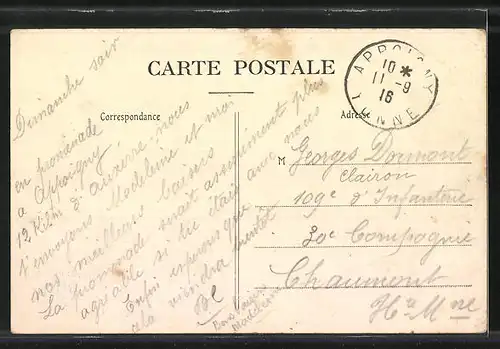 CARTE POSTALE
Correspondance
Adresse
APPOIGNY
10 *
11 -9
16
YONNE
Dimanche soir
en promenade
a Appoigny
12 Kilm d'auxerre nous
t'envoyons Madeleine et moi
nos meilleurs baisers
La promenade serait assurément plus
agréable si tu étais avec nous
Enfin espérons que
cela viendra bientôt
Bons baisers
Madeleine
M Georges Dormont
Clairon
109e d'Infanterie
30e Compagnie
Chaumont
Hte Mne